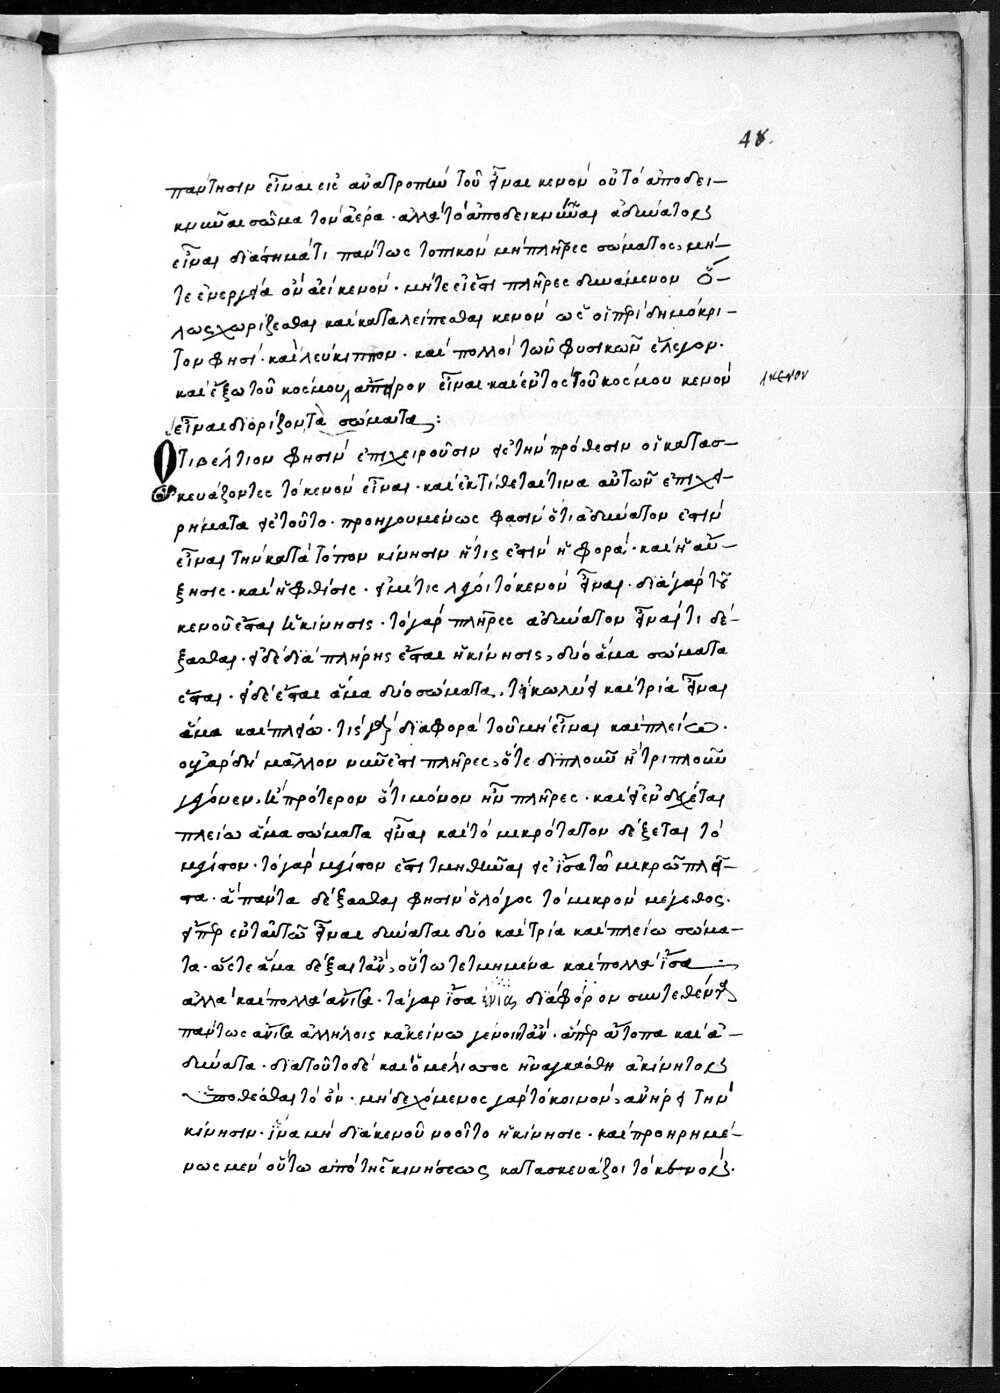 48.
πάντησιν εἶναι εἰς ἀνατροπὴν τοῦ εἶναι κενὸν οὐ τὸ ἀποδει-
κνῦναι σῶμα τὸν ἀέρα· ἀλλὰ τὸ ἀποδεικνῦναι ἀδύνατον
εἶναι διάστημά τι πάντως τοπικὸν μὴ πλῆρες σώματος, μή-
τε ἐνεργείᾳ ὂν ἀεὶ κενόν· μήτε εἰ ἔστι πλῆρες δυνάμενον ὅ-
λως χωρίζεσθαι καὶ καταλείπεσθαι κενὸν ὡς οἱ περὶ δημόκρι-
τον φησί· καὶ λεύκιππον· καὶ πολλοὶ τῶν φυσικῶν ἔλεγον·
καὶ ἔξω τοῦ κόσμου ἄπειρον εἶναι καὶ ἐντὸς τοῦ κόσμου κενὸν
κενον
εἶναι διορίζοντα σώματα:
Ὅτι βέλτιον φησὶν ἐπιχειροῦσιν εἰς τὴν πρόθεσιν οἱ κατασ-
κευάζοντες τὸ κενὸν εἶναι· καὶ ἐκτίθεταί τινα αὐτῶν ἐπιχει-
ρήματα εἰς τοῦτο· προηγουμένως φασὶν ὅτι ἀδύνατον ἐστὶν
εἶναι τὴν κατὰ τόπον κίνησιν ἥτις ἐστὶν ἡ φορά· καὶ ἡ αὔ-
ξησις· καὶ ἡ φθίσις· εἰ μή τις λέγοι τὸ κενὸν εἶναι· διὰ γὰρ τοῦ
κενοῦ ἔσται ἡ κίνησις· τὸ γὰρ πλῆρες ἀδύνατον εἶναί τι δέ-
ξασθαι· εἰ δὲ διὰ πλήρης ἔσται ἡ κίνησις, δύο ἅμα σώματα
ἔσται· εἰ δὲ ἔσται ἅμα δύο σώματα, τί κωλύει καὶ τρία εἶναι
ἅμα καὶ πλείω· τίς γὰρ διαφορὰ τοῦ μὴ εἶναι καὶ πλείω·
οὐ γὰρ δὴ μᾶλλον νῦν ἐστι πλῆρες, ὅτε διπλοῦν ἢ τριπλοῦν
γέγονεν, ἢ πρότερον ὅτι μόνον ἦν πλῆρες· καὶ εἰ ἐνδέχεται
πλείω ἅμα σώματα εἶναι καὶ τὸ μικρότατον δέξεται τὸ
μέγιστον· τὸ γὰρ μέγιστον ἔστι τμηθῆναι εἰς ἴσα τῷ μικρῷ πλεῖ-
στα· ἃ πάντα δέξασθαι φησὶν ὁ λόγος τὸ μικρὸν μέγεθος·
εἴπερ ἐν ταὐτῷ εἶναι δύναται δύο καὶ τρία καὶ πλείω σώμα-
τα· ὥστε ἅμα δέξαιτ' ἄν, οὕτω τετμημένα καὶ πολλὰ ἴσα
ἀλλὰ καὶ πολλὰ ἄνισα· τὰ γὰρ ἴσα ἐνίας διάφορον συντεθέντα
πάντως ἄνισα ἀλλήλοις κἀκείνω γένοιτ' ἄν· ἅπερ ἄτοπα καὶ ἀ-
δύνατα· διὰ τοῦτο δὲ καὶ ὁ μέλισσος ἠναγκάσθη ἀκίνητον
ὑποθέσθαι τὸ ὄν· μὴ δεχόμενος γὰρ τὸ κοινὸν, ἀνῄρει τὴν
κίνησιν· ἵνα μὴ διὰ κενοῦ νοοῖτο ἡ κίνησις· καὶ προηρημέ-
νως μὲν οὕτω ἀπὸ τῆς κινήσεως κατασκευάζοι τὸ κενόν·